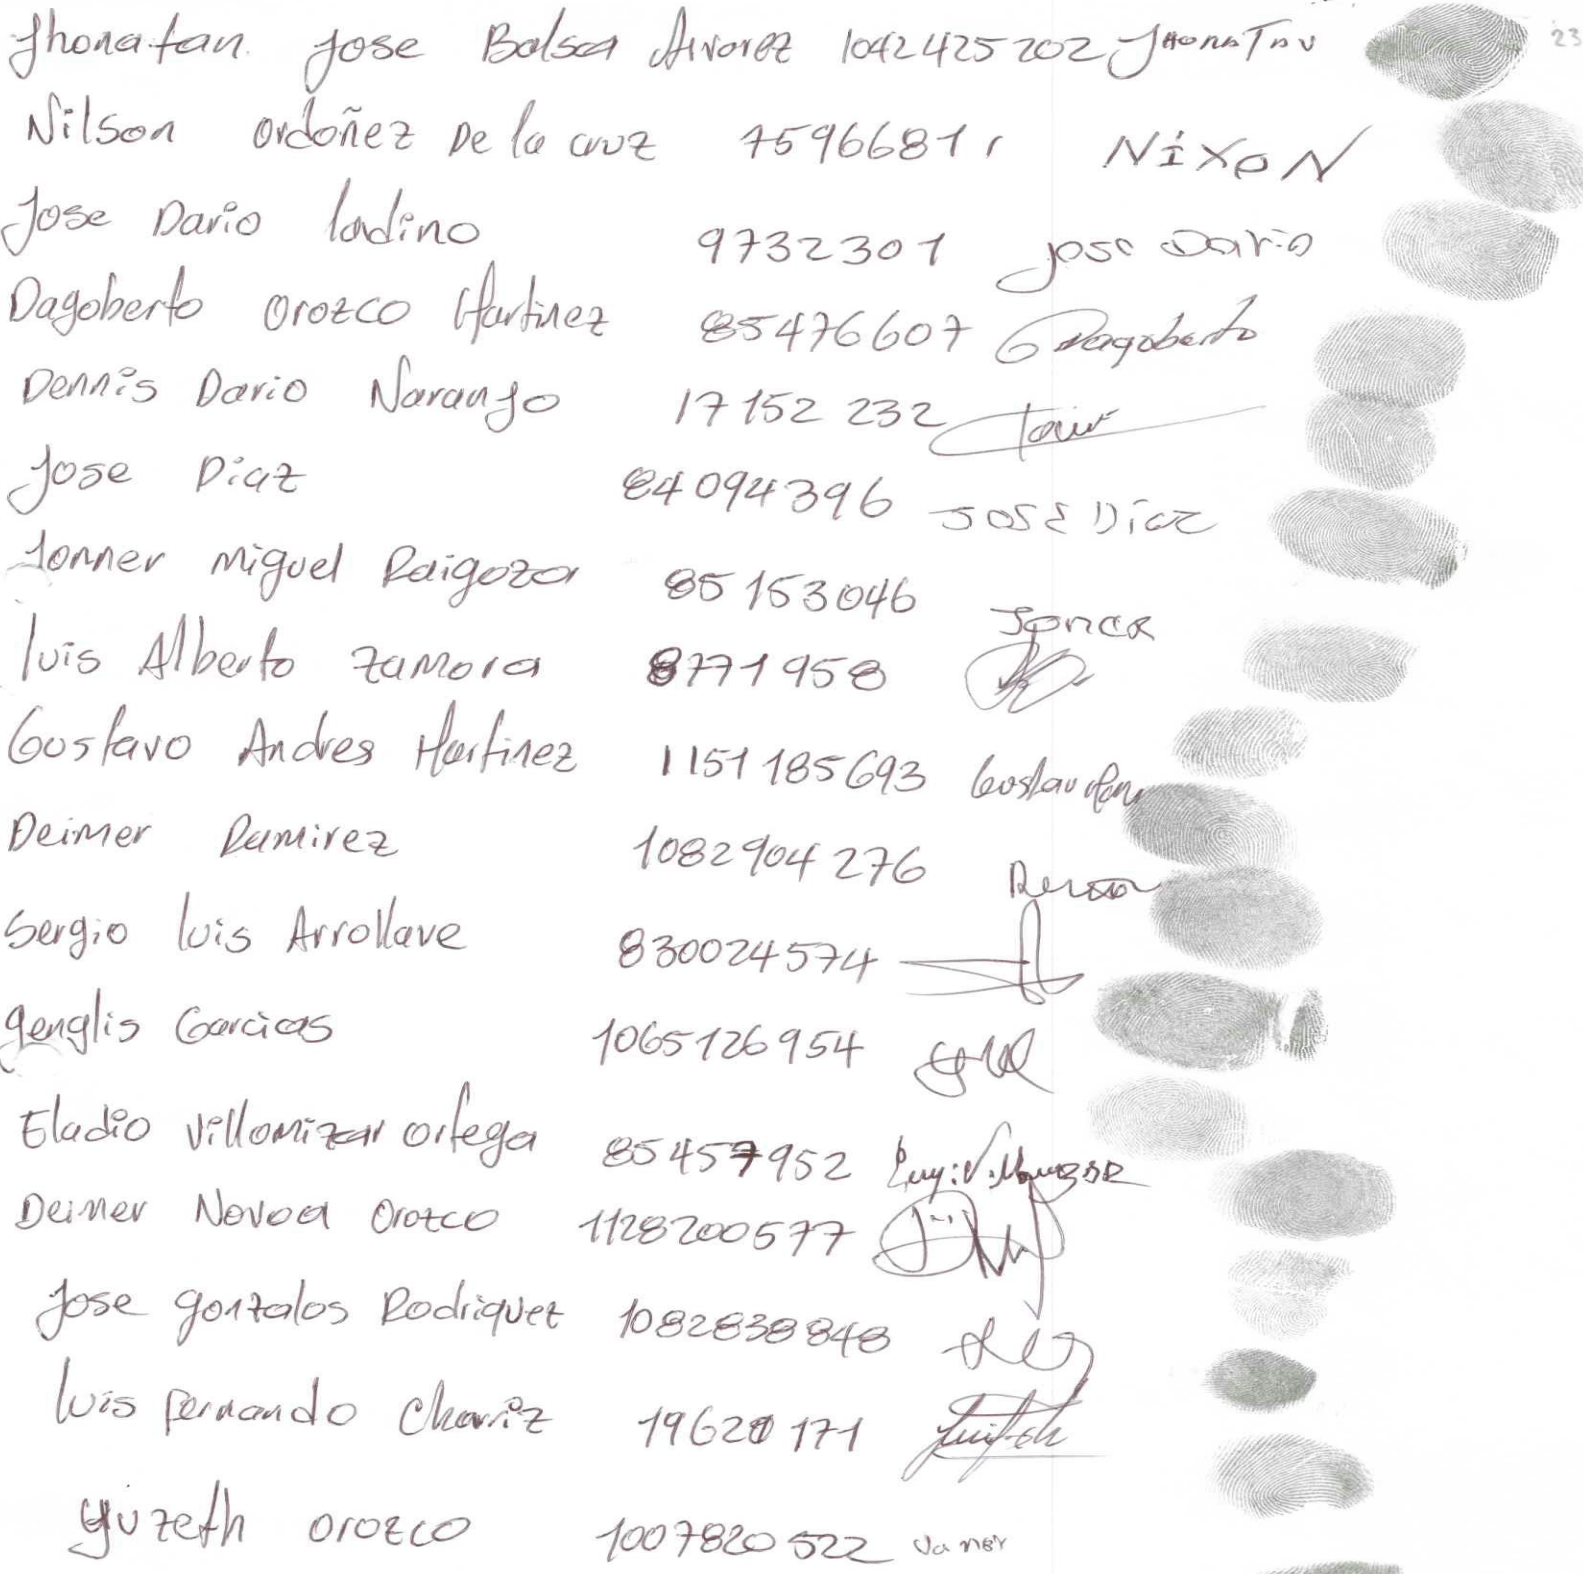 Jhonatan Jose Balsa Alvarez 1042425202 JHONATAN 23
Nilson ordoñez De la cruz 75966811 NiXON
Jose Dario ladino 9732301 jose Dario
Dagoberto Orozco Martinez 85476607 Dagoberto
Dennis Dario Naranjo 17152232
Jose Diaz 84094396 JOSE Diaz
Jonner Miguel Raigoza 85153046 Joner
luis Alberto Zamora 8771958
Gustavo Andres Martinez 1151185693 Gustavo
Deimer Ramirez 1082904276
Sergio luis Arrollave 830024574
genglis Garcias 1065126954
Eladio villamizar ortega 85457952
Deimer Novoa Orozco 1128200577
Jose gonzalos Rodriquez 1082838848
luis fernando Chariz 19620171
yuzeth orozco 1007820522